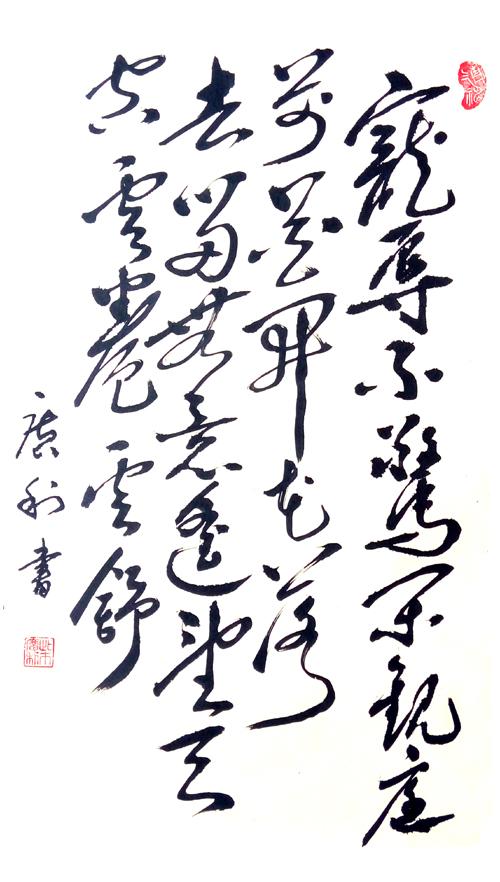 寵辱不驚閑觀庭
前花開花落
去留無意遙望天
空雲卷雲舒
廣利書